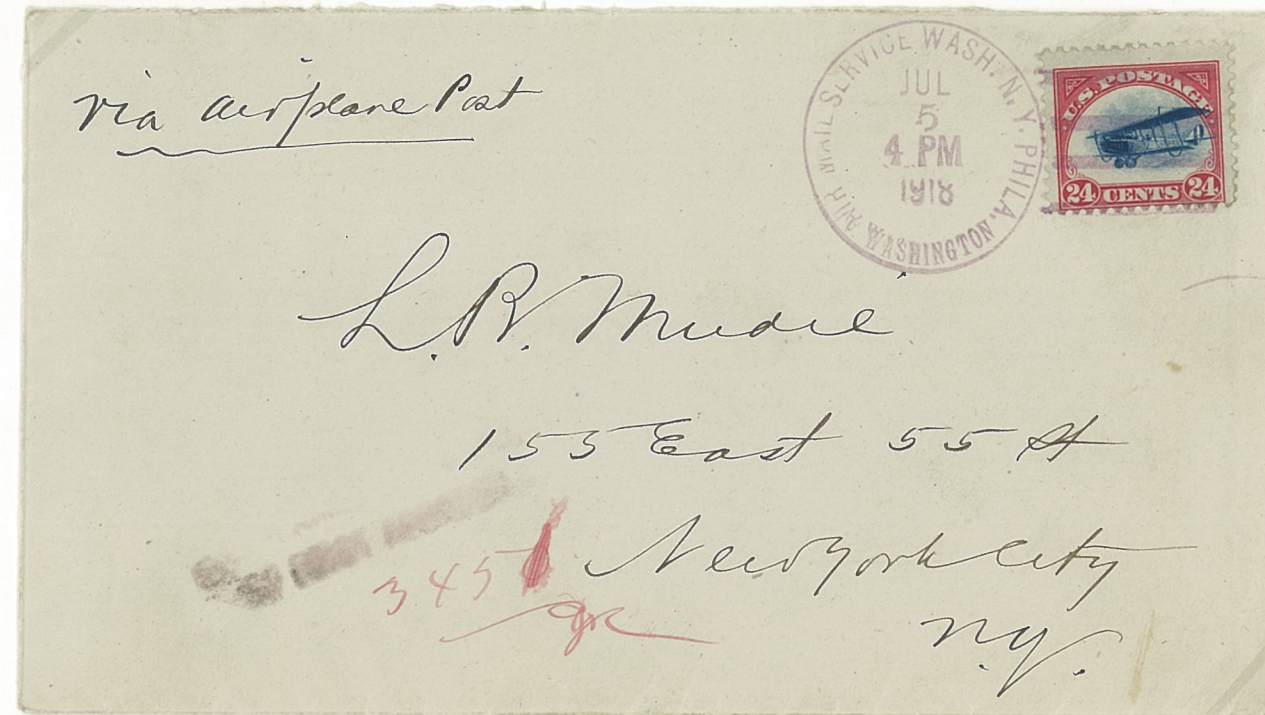 via airplane Post
AIR MAIL SERVICE WASH. N.Y. PHILA.
JUL
5
4 PM
1918
WASHINGTON.
U.S. POSTAGE
24 CENTS 24
L. R. Mudie
155 East 55 St
New York City
N.Y.
345